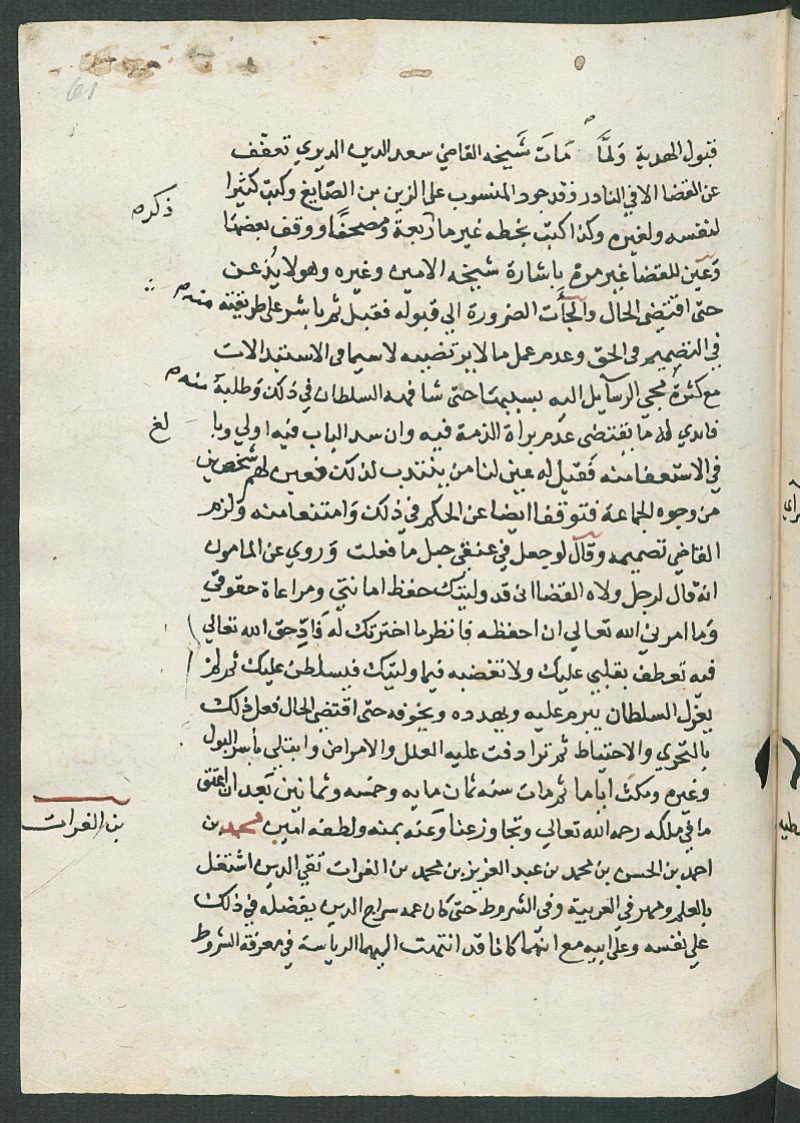 قبول الهدية ولما مات شيخه القاضي سعد الدين الديري تعفف
عن القضا الا في النادر وقد جود المنسوب على الزين بن الصايغ وكتب كثيرا
ذكره
لنفسه ولغيره وكذا كتب بخطه غير ما ربعة ومصحفا ووقف بعضها
وعين للقضا غير مرة باشارة شيخه الامين وغيره وهو لا يذعن
حتى اقتضى الحال والجأت الضرورة الي قبوله فقبل ثم باشر على طريقته
منه
في التصميم في الحق وعدم عمل ما لا يرتضيه لا سيما في الاستبدالات
مع كثرة مجي الرسايل اليه بسببها حتى شافهه السلطان في ذلك وطلبه
منه
فابدي له ما يقتضى عدم براة الذمة فيه وان سد الباب فيه اولي وبا
لغ
في الاستعفا منه فقيل له عين لنا من ينتدب لذلك فعين لهم شخصين
من وجوه الجماعة فتوقفا ايضا عن الحكم في ذلك وامتنعا منه ولزم
القاضي تصميمه وقال لو جعل في عنقي حبل ما فعلت وروي عن المامون
انه قال لرجل ولاه القضا اني قد وليتك حفظ امانتي ومراعاة حقوقي
وما امرني الله تعالي ان احفظه فانظر ما اخترتك له فادِّ حق الله تعالي
فيه تعطف بقلبي عليك ولا تغضبه فيما وليتك فيسلطن عليك ثم لم
يعزل السلطان يبرم عليه ويهدده ويخوفه حتى اقتضى الحال فعل ذلك
بالتحري والاحتياط ثم ترادفت عليه العلل والامراض وابتلي بأسر البول
وغيره ومكث اياما ثم مات سنه ثمان مايه وخمسه وثمانين بعد ان اعتق
ما في ملكه رحمه الله تعالي وتجاوز عنا وعنه بمنه ولطفه امين محمد بن
بن الفرات
احمد بن الحسن بن محمد بن عبد العزيز بن محمد بن الفرات تقي الدين اشتغل
بالعلم ومهر في العربية وفي الشروط حتى كان عمه سراج الدين يفضله في ذلك
علي نفسه وعلى ابيه مع انهما كانا قد انتهت اليهما الرياسة في معرفة الشروط